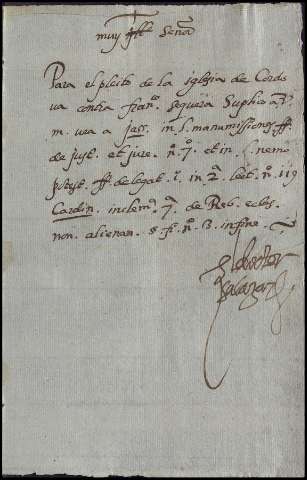 muy Ille Señor
Para el pleito de la iglesia de Cordo
ua contra franco. sequera Suplico a v.
m. uea a Jass. in l. manumissiones ff.
de just. et jure. n.o 7. et in l. nemo
potest. ff. de legat. 1. in 2.a lect. n.o 119
Cardin. in clem. 7. de Reb. eccles.
non. alienan. § fi. n.o 3. in fine.
El doctor
Salazar